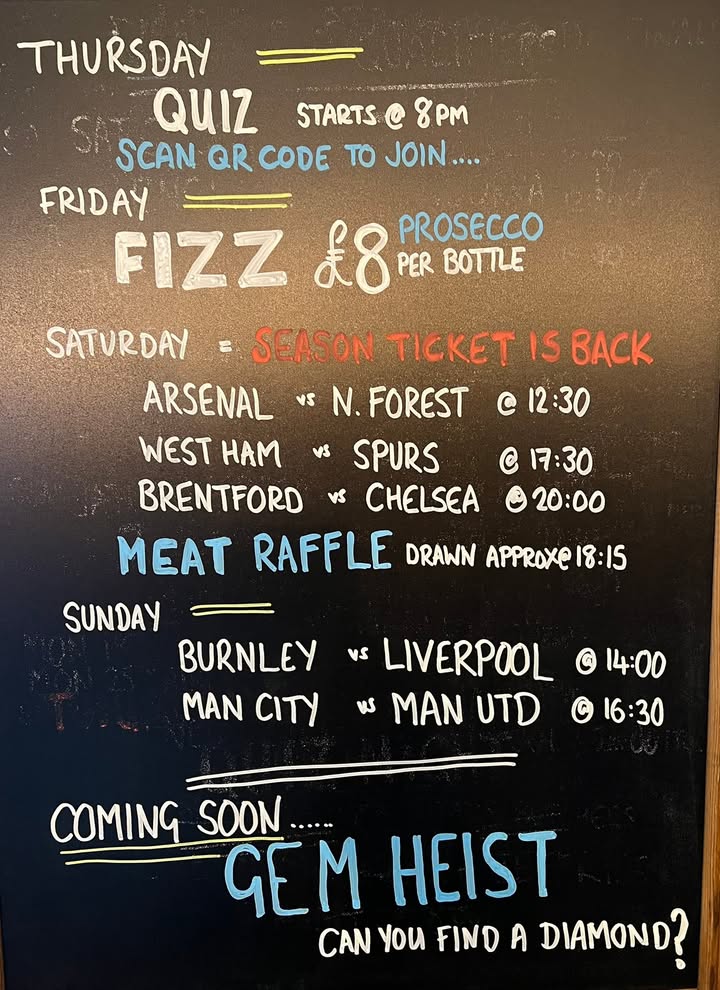 THURSDAY
QUIZ STARTS @ 8PM
SCAN QR CODE TO JOIN....
FRIDAY
FIZZ £8 PROSECCO
PER BOTTLE
SATURDAY = SEASON TICKET IS BACK
ARSENAL vs N. FOREST @ 12:30
WEST HAM vs SPURS @ 17:30
BRENTFORD vs CHELSEA @ 20:00
MEAT RAFFLE DRAWN APPROX@ 18:15
SUNDAY
BURNLEY vs LIVERPOOL @ 14:00
MAN CITY vs MAN UTD @ 16:30
COMING SOON......
GEM HEIST
CAN YOU FIND A DIAMOND?